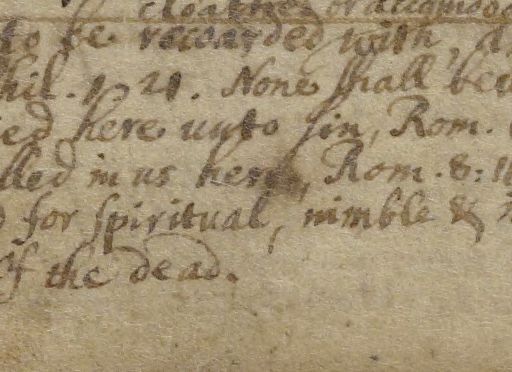 cloathed or accomoda
to be rewarded with,
hil. 1. 21. None shall be
ied here unto sin, Rom.
lled in us here, Rom. 8:
for spiritual, nimble &
of the dead.